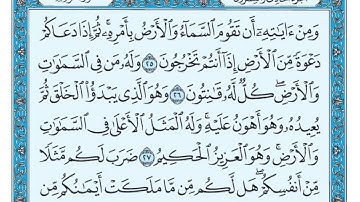 وَمِنْ ءَايَٰتِهِۦٓ أَن تَقُومَ ٱلسَّمَآءُ وَٱلْأَرْضُ بِأَمْرِهِۦ ۚ ثُمَّ إِذَا دَعَاكُمْ
دَعْوَةً مِّنَ ٱلْأَرْضِ إِذَآ أَنتُمْ تَخْرُجُونَ ٢٥ وَلَهُۥ مَن فِى ٱلسَّمَٰوَٰتِ
وَٱلْأَرْضِ ۖ كُلٌّ لَّهُۥ قَٰنِتُونَ ٢٦ وَهُوَ ٱلَّذِى يَبْدَؤُا۟ ٱلْخَلْقَ ثُمَّ
يُعِيدُهُۥ وَهُوَ أَهْوَنُ عَلَيْهِ ۚ وَلَهُ ٱلْمَثَلُ ٱلْأَعْلَىٰ فِى ٱلسَّمَٰوَٰتِ
وَٱلْأَرْضِ ۚ وَهُوَ ٱلْعَزِيزُ ٱلْحَكِيمُ ٢٧ ضَرَبَ لَكُم مَّثَلًا
مِّنْ أَنفُسِكُمْ ۖ هَل لَّكُم مِّن مَّا مَلَكَتْ أَيْمَٰنُكُم مِّن